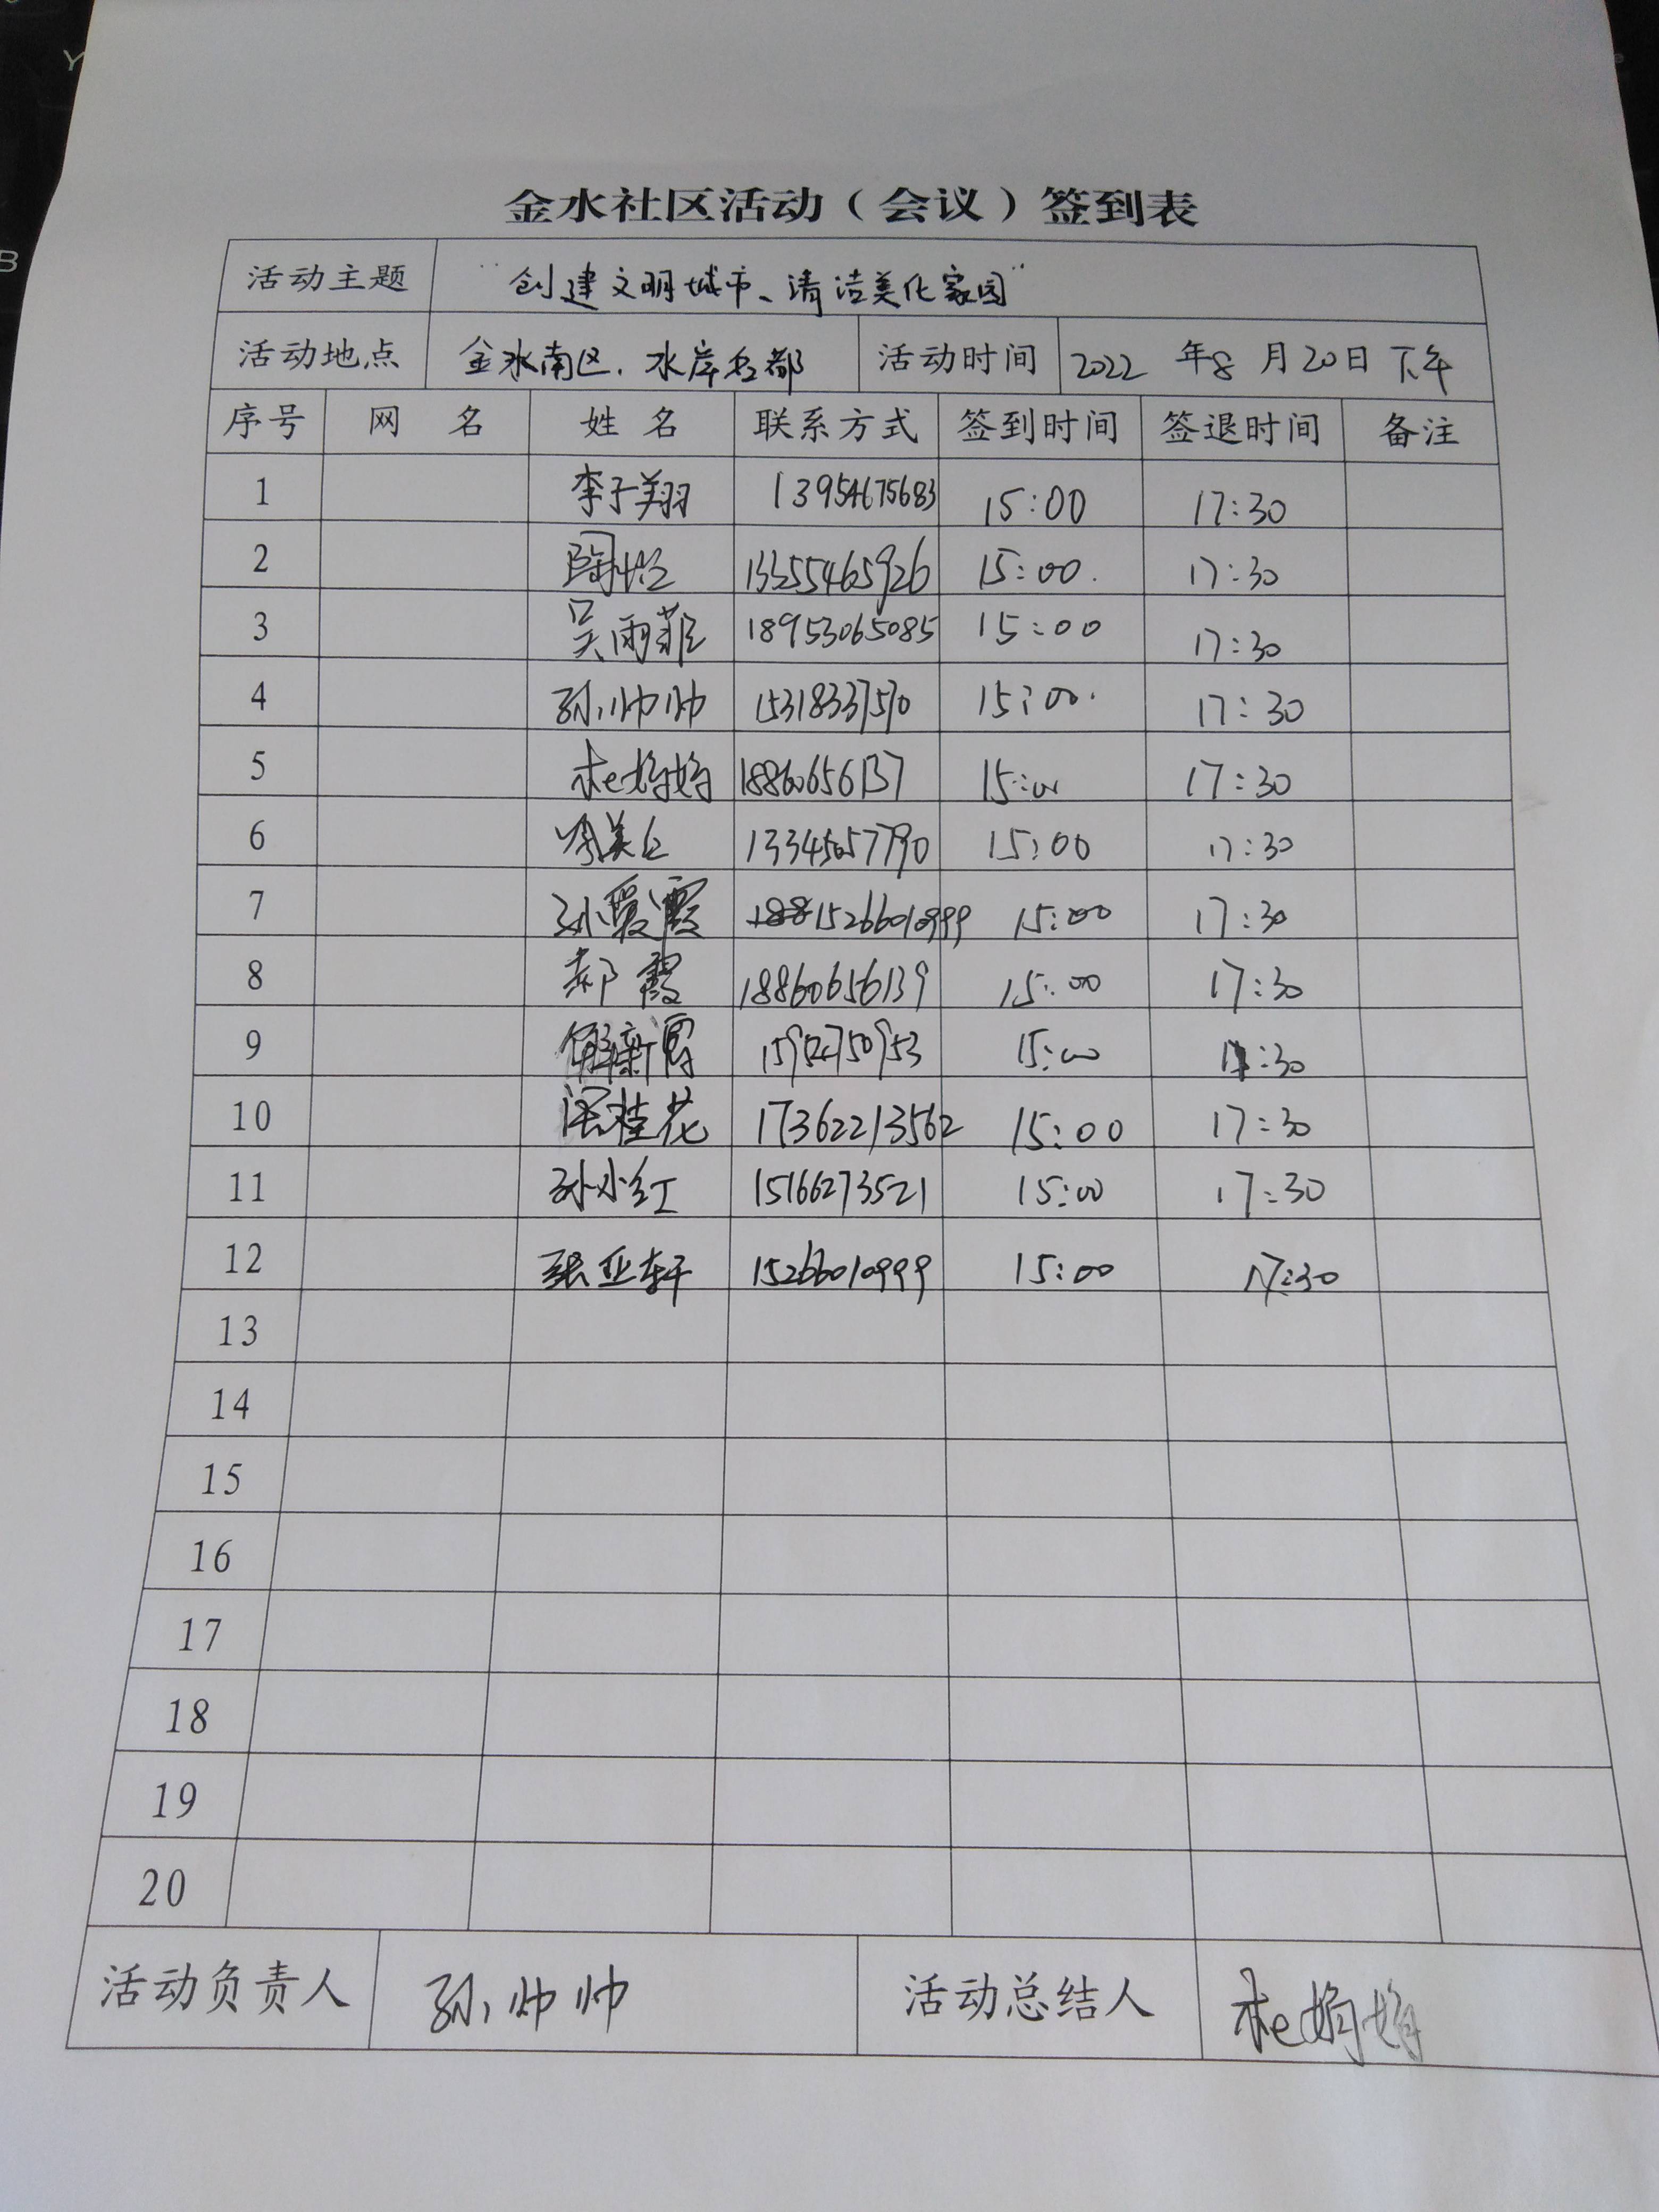 金水社区活动（会议）签到表
活动主题 "创建文明城市、清洁美化家园"
活动地点 金水南区、水岸名都 活动时间 2022 年8 月20日 下午
序号 网 名 姓 名 联系方式 签到时间 签退时间 备注
1 李子翔 13954675683 15:00 17:30
2 13255465926 15:00 17:30
3 吴雨菲 18953065085 15:00 17:30
4 孙帅帅 15318337570 15:00 17:30
5 18860656137 15:00 17:30
6 15:00 17:30
7 孙爱霞 15266010999 15:00 17:30
8 郝霞 18860656139 15:00 17:30
9 15:00 17:30
10 桂花 17362213562 15:00 17:30
11 孙小红 15166273521 15:00 17:30
12 张亚轩 15266010999 15:00 17:30
13
14
15
16
17
18
19
20
活动负责人 孙帅帅 活动总结人